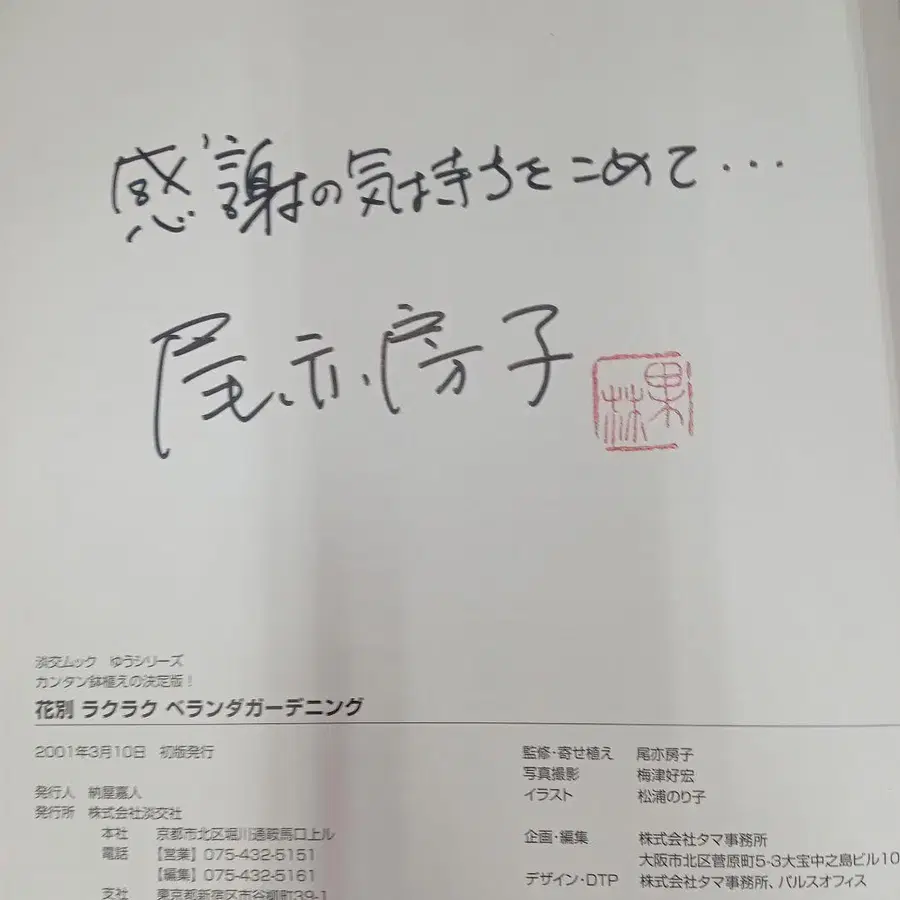 感謝の気持ちをこめて・・・
尾亦房子
淡交ムック ゆうシリーズ
カンタン鉢植えの決定版！
花別 ラクラク ベランダガーデニング
2001年3月10日 初版発行
発行人 納屋嘉人
発行所 株式会社淡交社
本社 京都市北区堀川通鞍馬口上ル
電話 【営業】075-432-5151
【編集】075-432-5161
支社 東京都新宿区市谷柳町39-1
監修・寄せ植え 尾亦房子
写真撮影 梅津好宏
イラスト 松浦のり子
企画・編集 株式会社タマ事務所
大阪市北区菅原町5-3大宝中之島ビル10
デザイン・DTP 株式会社タマ事務所、パルスオフィス